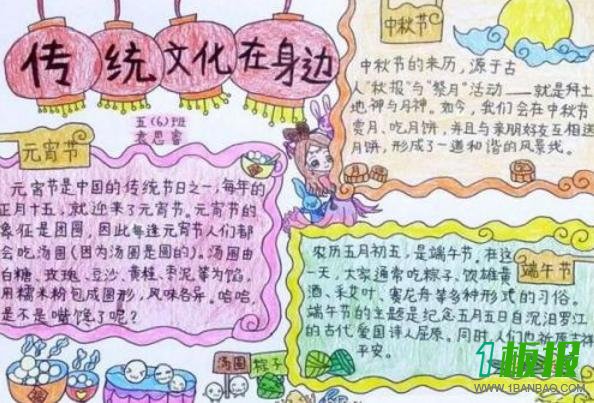 传统文化在身边
五(6)班
袁思睿
元宵节
元宵节是中国的传统节日之一,每年的
正月十五,就迎来了元宵节。元宵节的
象征是团圆,因此每逢元宵节人们都
会吃汤圆(因为汤圆是圆的)。汤圆由
白糖、玫瑰、豆沙、黄桂、枣泥等为馅,
用糯米粉包成圆形,风味各异,哈哈,
是不是嘴馋了呢?
汤圆
粽子
中秋节
中秋节的来历,源于古
人"秋报"与"祭月"活动——就是拜土
地神与月神。如今,我们会在中秋节
赏月、吃月饼,并且与亲朋好友互相送
月饼,形成了一道和谐的风景线。
端午节
农历五月初五,是端午节,在这
一天,大家通常吃粽子、饮雄黄
酒、采艾叶、赛龙舟等多种形式的习俗。
端午节的主题是纪念五月五日自沉汨罗江
的古代爱国诗人屈原。同时人们也祈愿吉祥
平安。
1板报
WWW.1BANBAO.COM